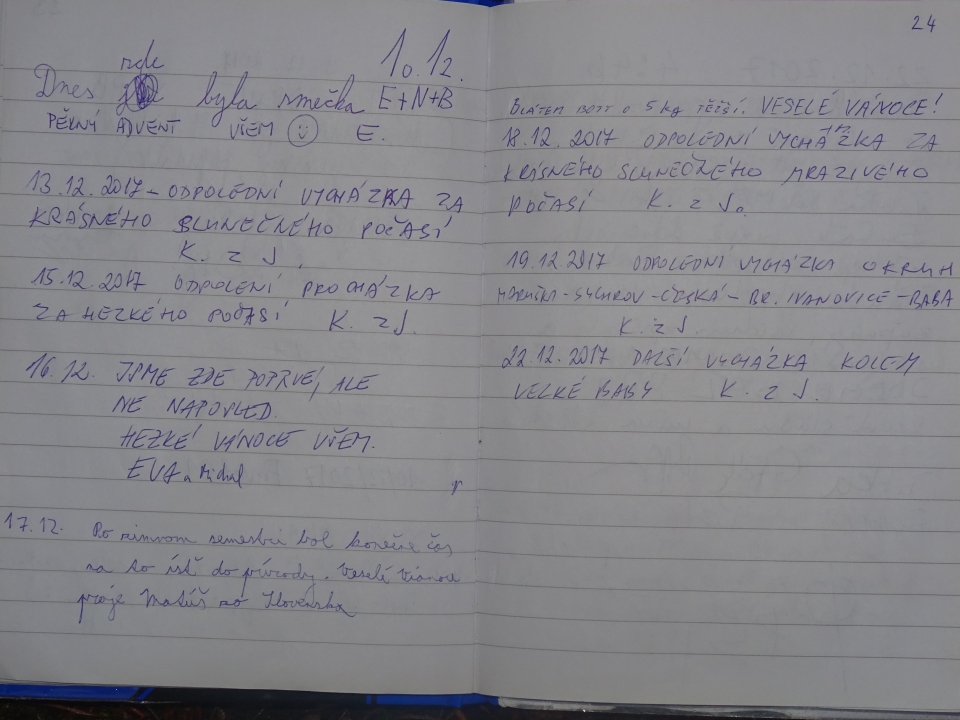 10.12.
Dnes zde byla smečka E+N+B
PĚKNÝ ADVENT VŠEM ☺ E.
13.12.2017 - ODPOLEDNÍ VYCHÁZKA ZA
KRÁSNÉHO SLUNEČNÉHO POČASÍ
K. z J.
15.12.2017 ODPOLENÍ PROCHÁZKA
ZA HEZKÉHO POČASÍ K. z J.
16.12. JSME ZDE POPRVÉ, ALE
NE NAPOSLED.
HEZKÉ VÁNOCE VŠEM.
EVA a Michal
17.12. Po zimnom semestri bol konečne čas
na to ísť do prírody. Veselé Vianoce
praje Matúš zo Slovenska
24
BLÁTEM BOTY O 5 kg TĚŽŠÍ. VESELÉ VÁNOCE!
18.12.2017 ODPOLEDNÍ VYCHÁZKA ZA
KRÁSNÉHO SLUNEČNÉHO MRAZIVÉHO
POČASÍ K. z J.
19.12.2017 ODPOLEDNÍ VYCHÁZKA OKRUH
SYCHROV - ČESKÁ - BR. IVANOVICE - BABA
K. z J.
22.12.2017 DALŠÍ VYCHÁZKA KOLEM
VELKÉ BABY K. z J.